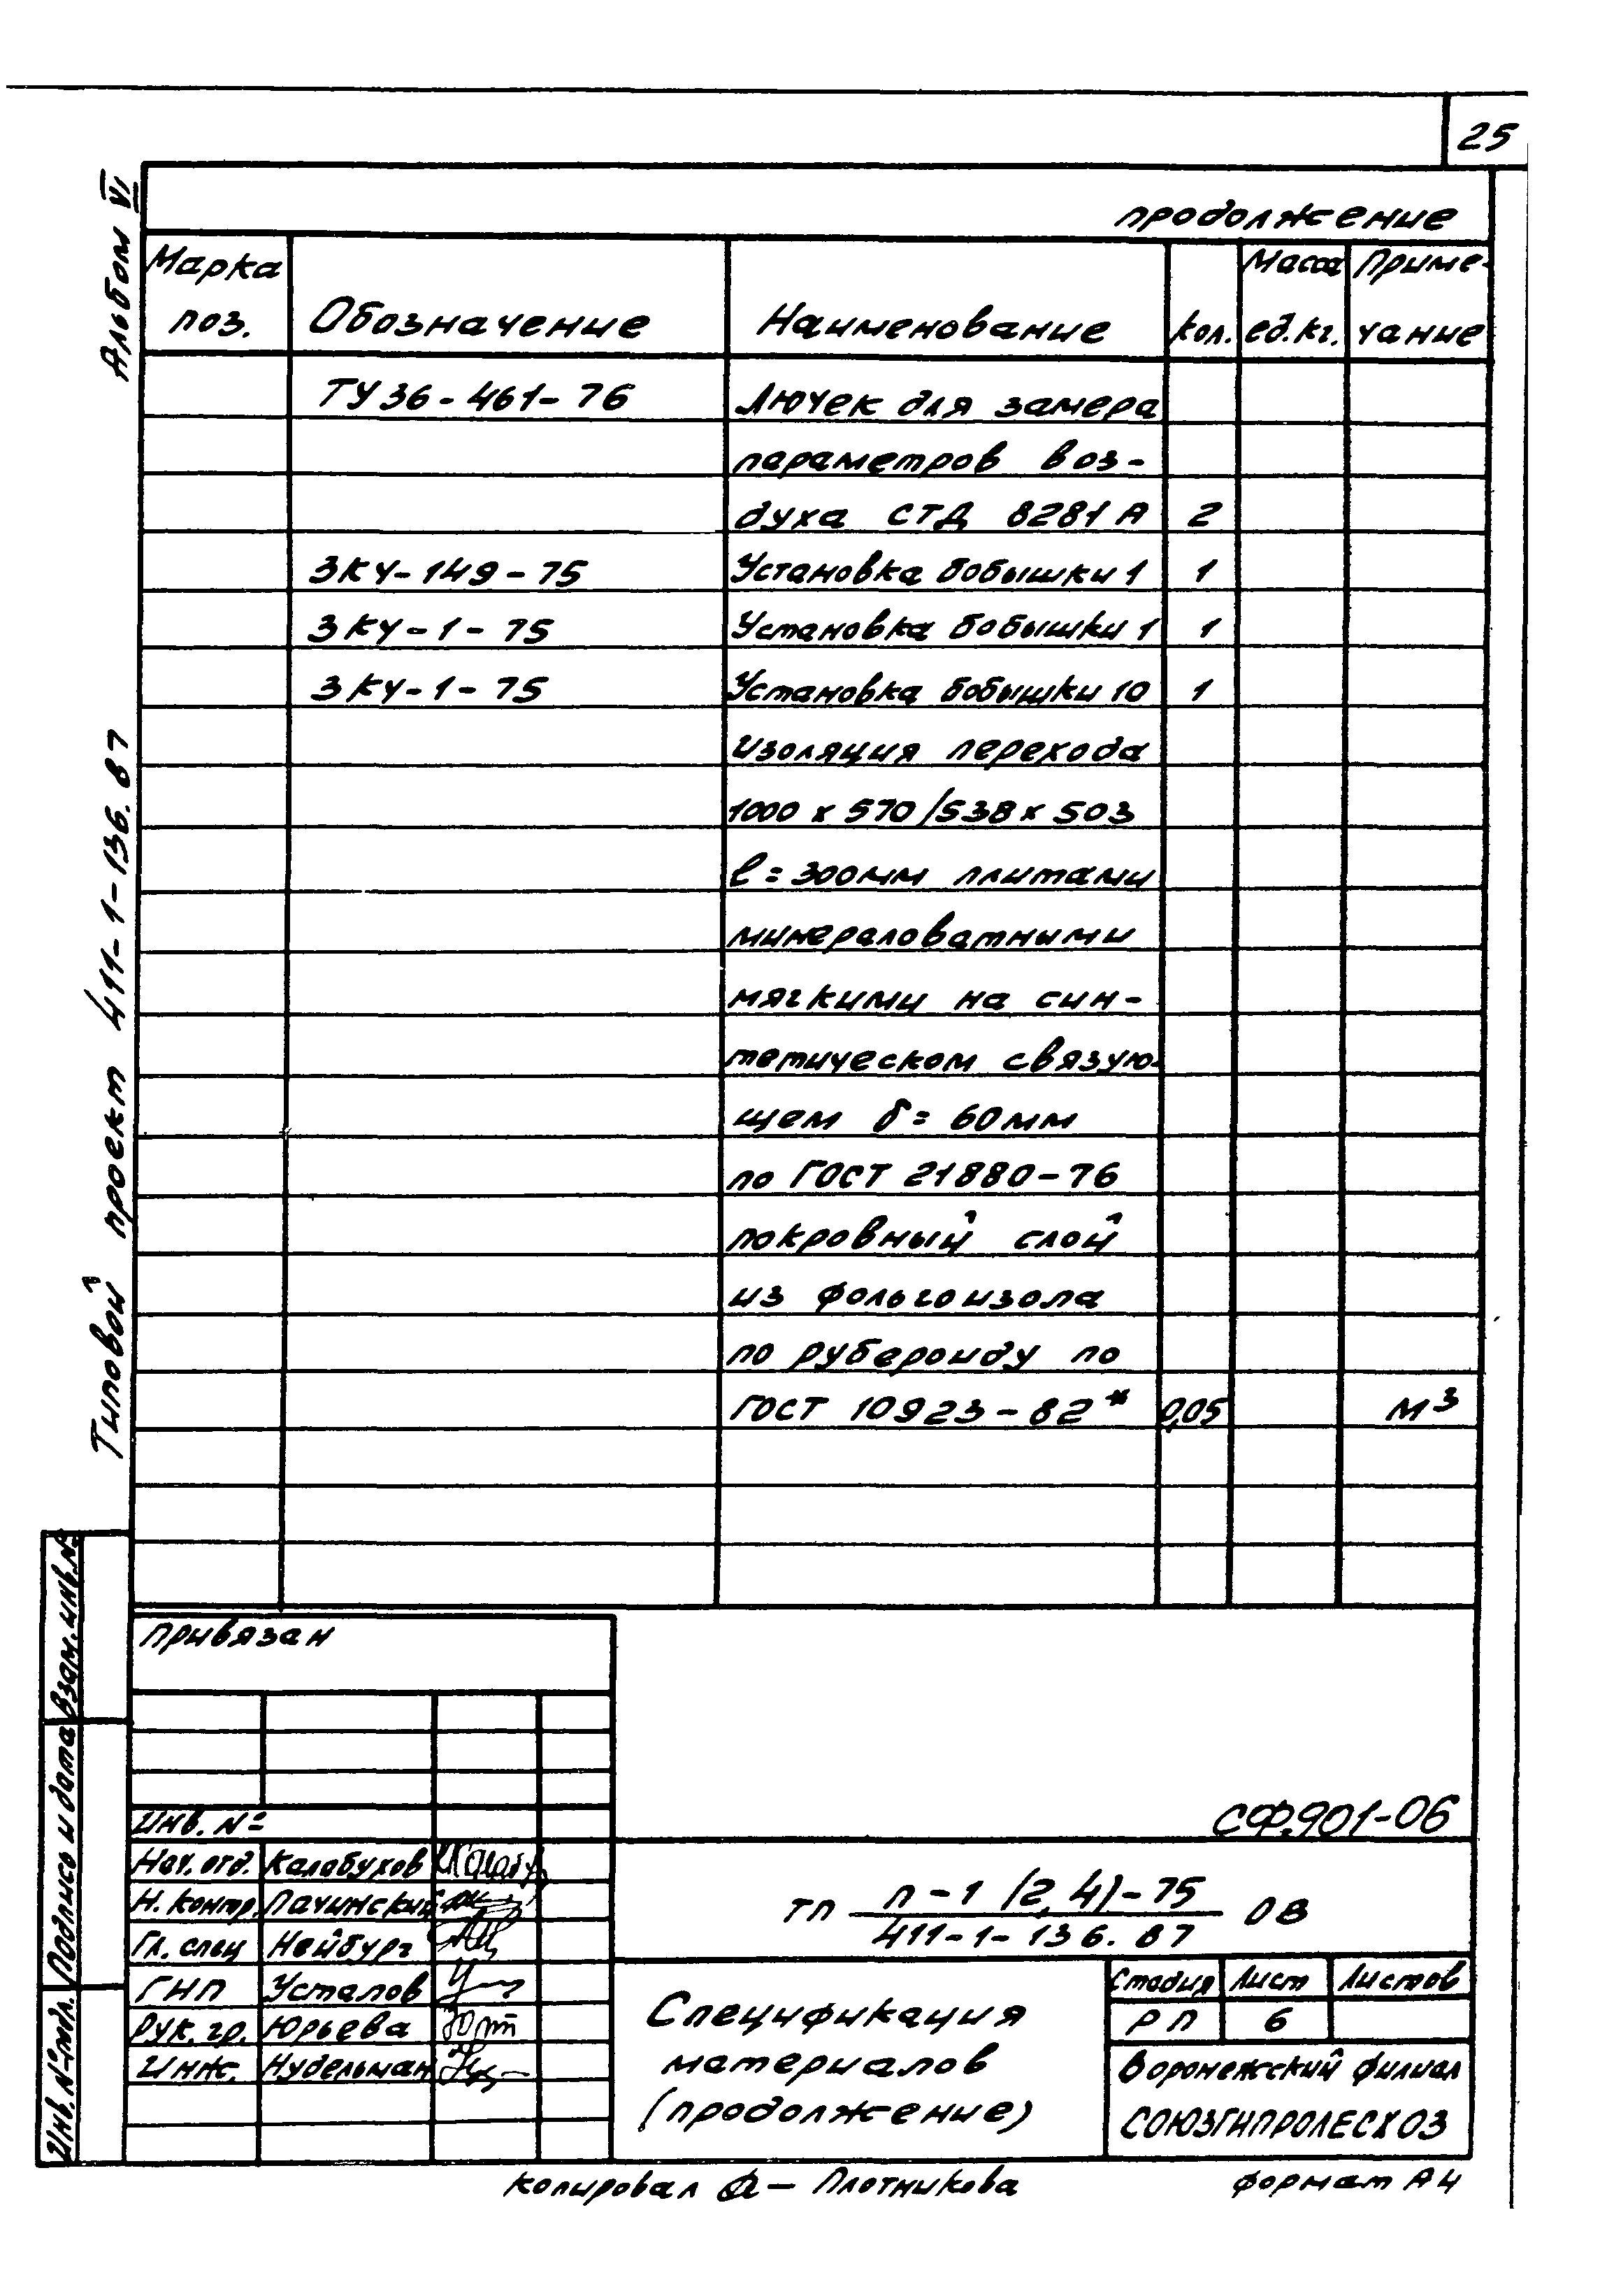 25
Альбом VI
Типовой проект 411-1-136.87
продолжение
Марка поз.
Обозначение
Наименование
Кол.
Масса ед.кг.
Приме-
чание
ТУ 36-461-76 Лючек для замера
параметров воз-
духа СТД 8281А 2
ЗКЧ-149-75 Установка бобышки 1 1
ЗКЧ-1-75 Установка бобышки 1 1
ЗКЧ-1-75 Установка бобышки 10 1
изоляция перехода
1000 х 570/538 х 503
ℓ=300мм плитами
минераловатными
мягкими на син-
тетическом связую-
щем δ=60мм
по ГОСТ 21880-76
покровный слой
из фольгоизола
по рубероиду по
ГОСТ 10923-82* 0,05 м³
Взам.инв.№
Подпись и дата
Инв.№ подл.
Привязан
Инв. №
СФ.901-06
Нач. отд. Калабухов
Н. контр. Пачинский
Гл. спец Нейбург
ГИП Усталов
Рук. гр. Юрьева
Инж. Нудельман
ТП п-1 (2,4)-75 ОВ
411-1-136.87
Спецификация
материалов
(продолжение)
Стадия Лист Листов
РП 6
Воронежский филиал
СОЮЗГИПРОЛЕСХОЗ
Копировал Плотникова
формат А4